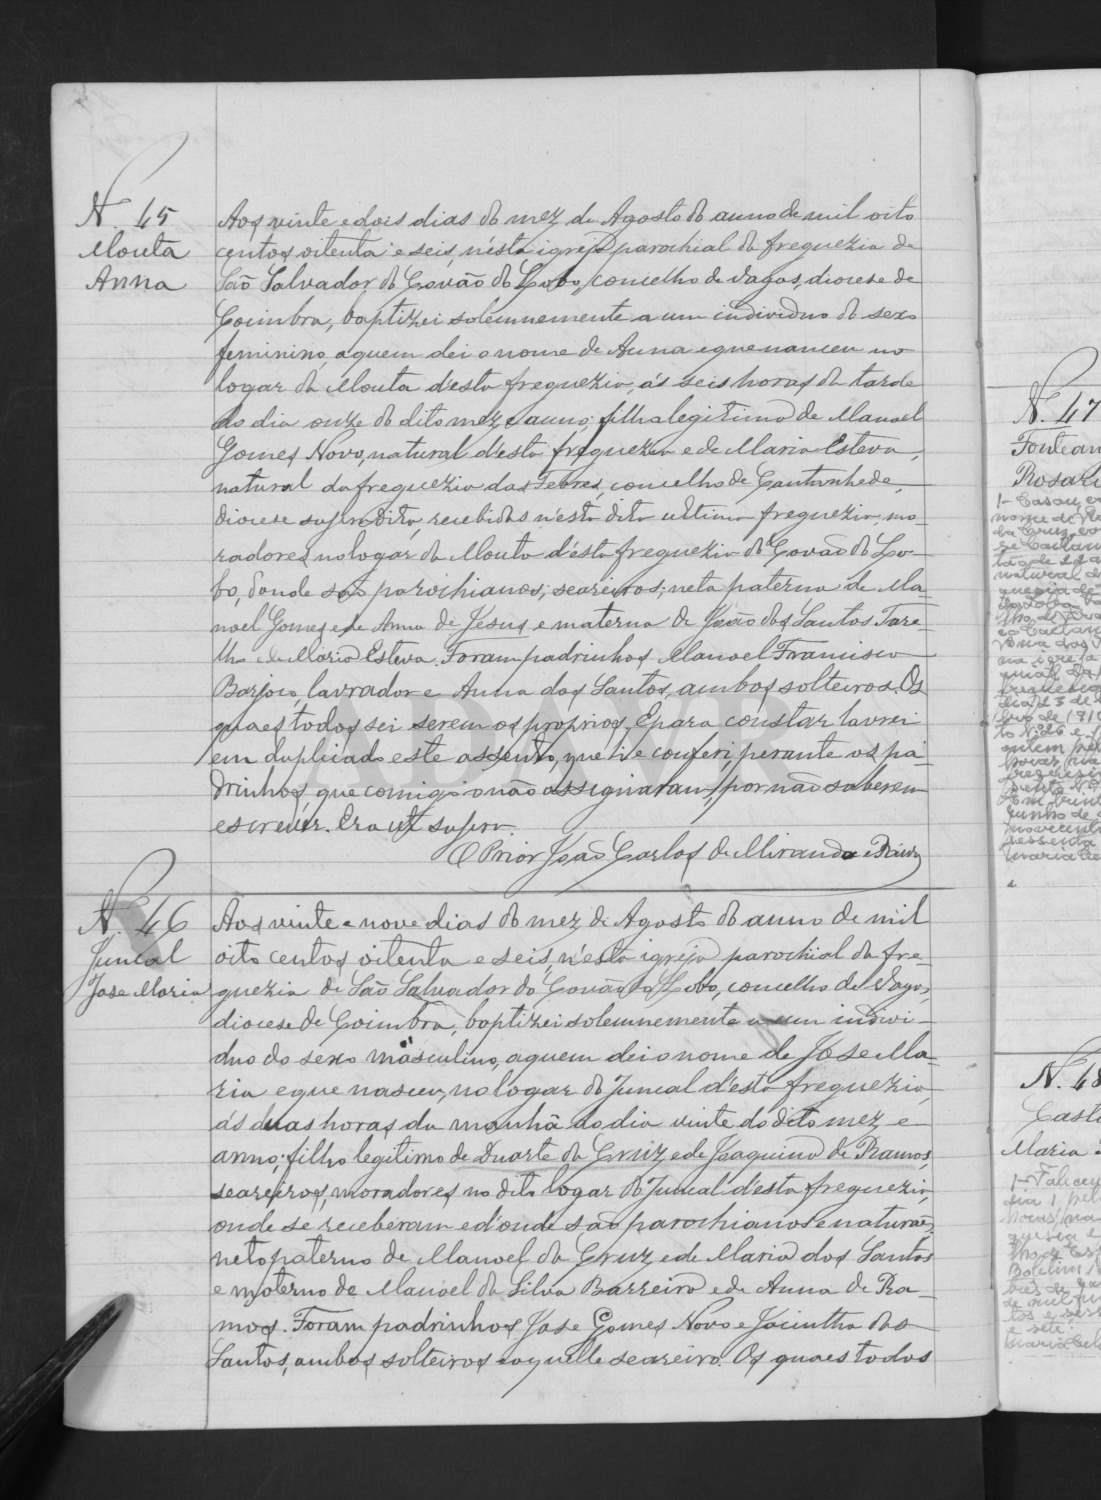 N. 45
Mouta
Anna
Aos vinte e dois dias do mez de Agosto do anno de mil oito
centos oitenta e seis, n'esta igreja parochial da freguezia de
São Salvador do Covão do Lobo, concelho de Vagos, diocese de
Coimbra, baptizei solemnemente a um individuo do sexo
feminino, a quem dei o nome de Anna e que nasceu no
logar da Mouta d'esta freguezia ás seis horas da tarde
do dia onze do dito mez e anno; filha legitima de Manoel
Gomes Novo, natural d'esta freguezia e de Maria Esteva,
natural da freguezia das Febres, concelho de Cantanhede,
diocese supradita, recebidos n'esta dita ultima freguezia, mo-
radores no logar da Mouta d'esta freguezia do Covão do Lo-
bo, d'onde são parochianos; seareiros; neta paterna de Ma-
noel Gomes e de Anna de Jesus e materna de João dos Santos Tare-
lho e de Maria Esteva. Foram padrinhos Manoel Francisco
lavrador e Anna dos Santos, ambos solteiros. Os
quaes todos sei serem os proprios. E para constar lavrei
em duplicado este assento, que li e conferi perante os pa-
drinhos, que comigo não assignaram, por não saberem
escrever. Era ut supra.
O Prior João Carlos de Miranda e
N. 46
Juncal
Jose Maria
Aos vinte e nove dias do mez de Agosto do anno de mil
oito centos oitenta e seis, n'esta igreja parochial da fre-
guezia de São Salvador do Covão do Lobo, concelho de Vagos,
diocese de Coimbra, baptizei solemnemente a um indivi-
duo do sexo masculino, a quem dei o nome de Jose Ma-
ria e que nasceu, no logar do Juncal d'esta freguezia,
ás duas horas da manhã do dia vinte do dito mez e
anno; filho legitimo de Duarte da Cruz e de Joaquina de Ramos,
seareiros, moradores no dito logar do Juncal d'esta freguezia,
onde se receberam e d'onde são parochianos e naturaes,
neto paterno de Manoel da Cruz e de Maria dos Santos
e materno de Manoel da Silva Barreiro e de Anna de Ra-
mos. Foram padrinhos Jose Gomes Novo e Jacintha dos
Santos, ambos solteiros e aquelle seareiro. Os quaes todos
ADAVR
N. 47
N. 48
Maria